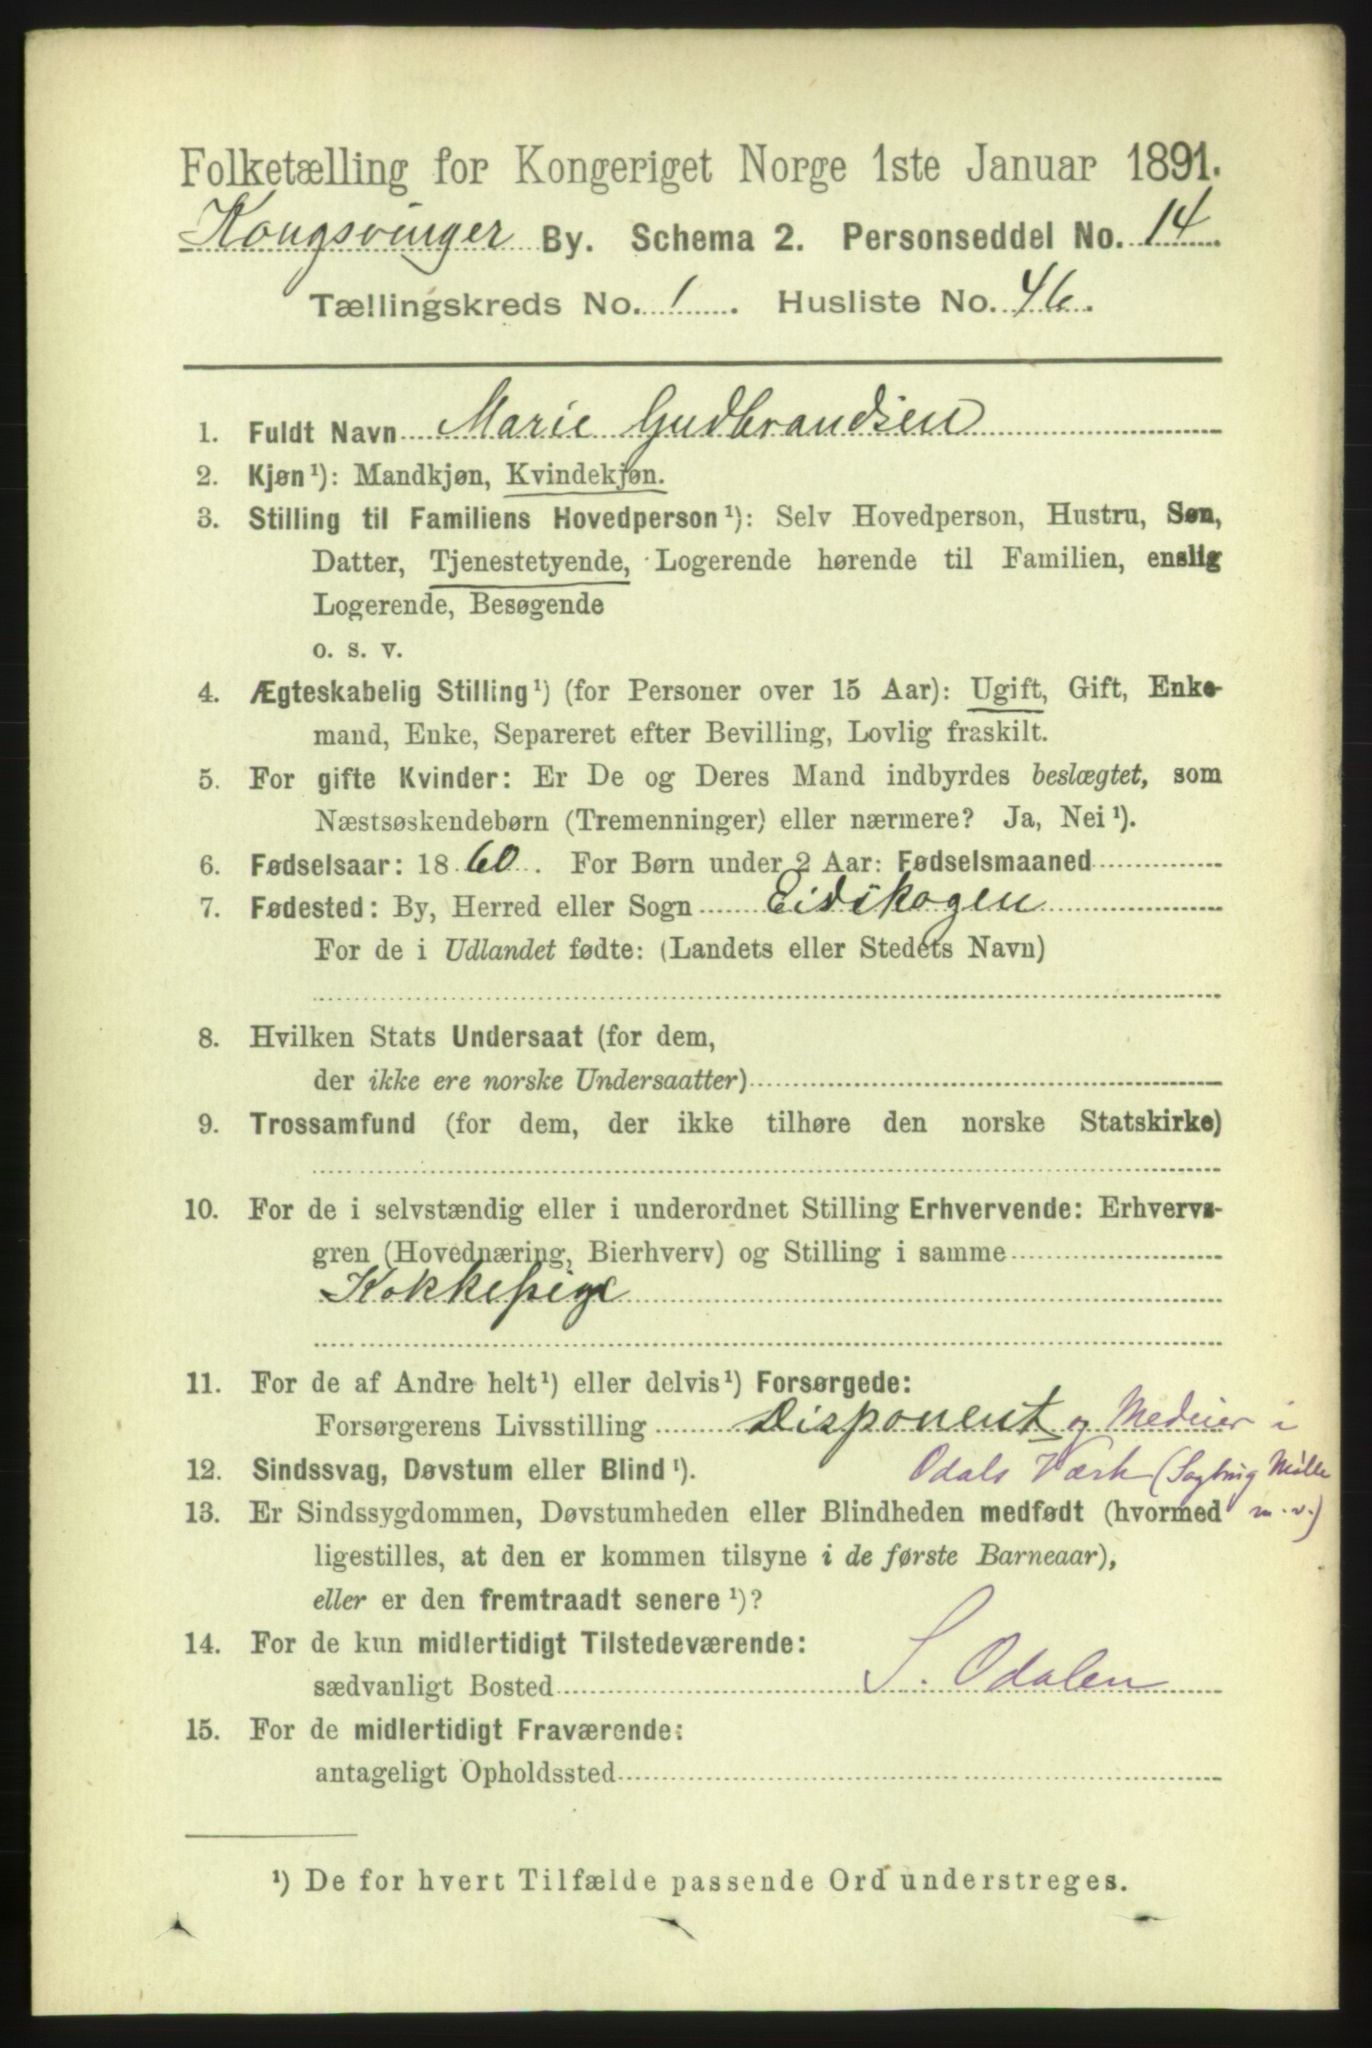 Folketælling for Kongeriget Norge 1ste Januar 1891.
Kongsvinger By. Schema 2. Personseddel No. 14
Tællingskreds No. 1. Husliste No. 46.
1. Fuldt Navn Marie Gudbrandsen
2. Kjøn¹): Mandkjøn, Kvindekjøn.
3. Stilling til Familiens Hovedperson¹): Selv Hovedperson, Hustru, Søn,
Datter, Tjenestetyende, Logerende hørende til Familien, enslig
Logerende, Besøgende
o. s. v.
4. Ægteskabelig Stilling¹) (for Personer over 15 Aar): Ugift, Gift, Enke-
mand, Enke, Separeret efter Bevilling, Lovlig fraskilt.
5. For gifte Kvinder: Er De og Deres Mand indbyrdes beslægtet, som
Næstsøskendebørn (Tremenninger) eller nærmere? Ja, Nei¹).
6. Fødselsaar: 1860. For Børn under 2 Aar: Fødselsmaaned
7. Fødested: By, Herred eller Sogn Eidskogen
For de i Udlandet fødte: (Landets eller Stedets Navn)
8. Hvilken Stats Undersaat (for dem,
der ikke ere norske Undersaatter)
9. Trossamfund (for dem, der ikke tilhøre den norske Statskirke)
10. For de i selvstændig eller i underordnet Stilling Erhvervende: Erhvervs-
gren (Hovednæring, Bierhverv) og Stilling i samme
Kokkepige
11. For de af Andre helt¹) eller delvis¹) Forsørgede:
Forsørgerens Livsstilling Disponent og Medeier i
12. Sindssvag, Døvstum eller Blind¹). Odals Værk (Sagbrug Mølle
13. Er Sindssygdommen, Døvstumheden eller Blindheden medfødt (hvormed m. v.)
ligestilles, at den er kommen tilsyne i de første Barneaar),
eller er den fremtraadt senere¹)?
14. For de kun midlertidigt Tilstedeværende:
sædvanligt Bosted S. Odalen
15. For de midlertidigt Fraværende:
antageligt Opholdssted
¹) De for hvert Tilfælde passende Ord understreges.